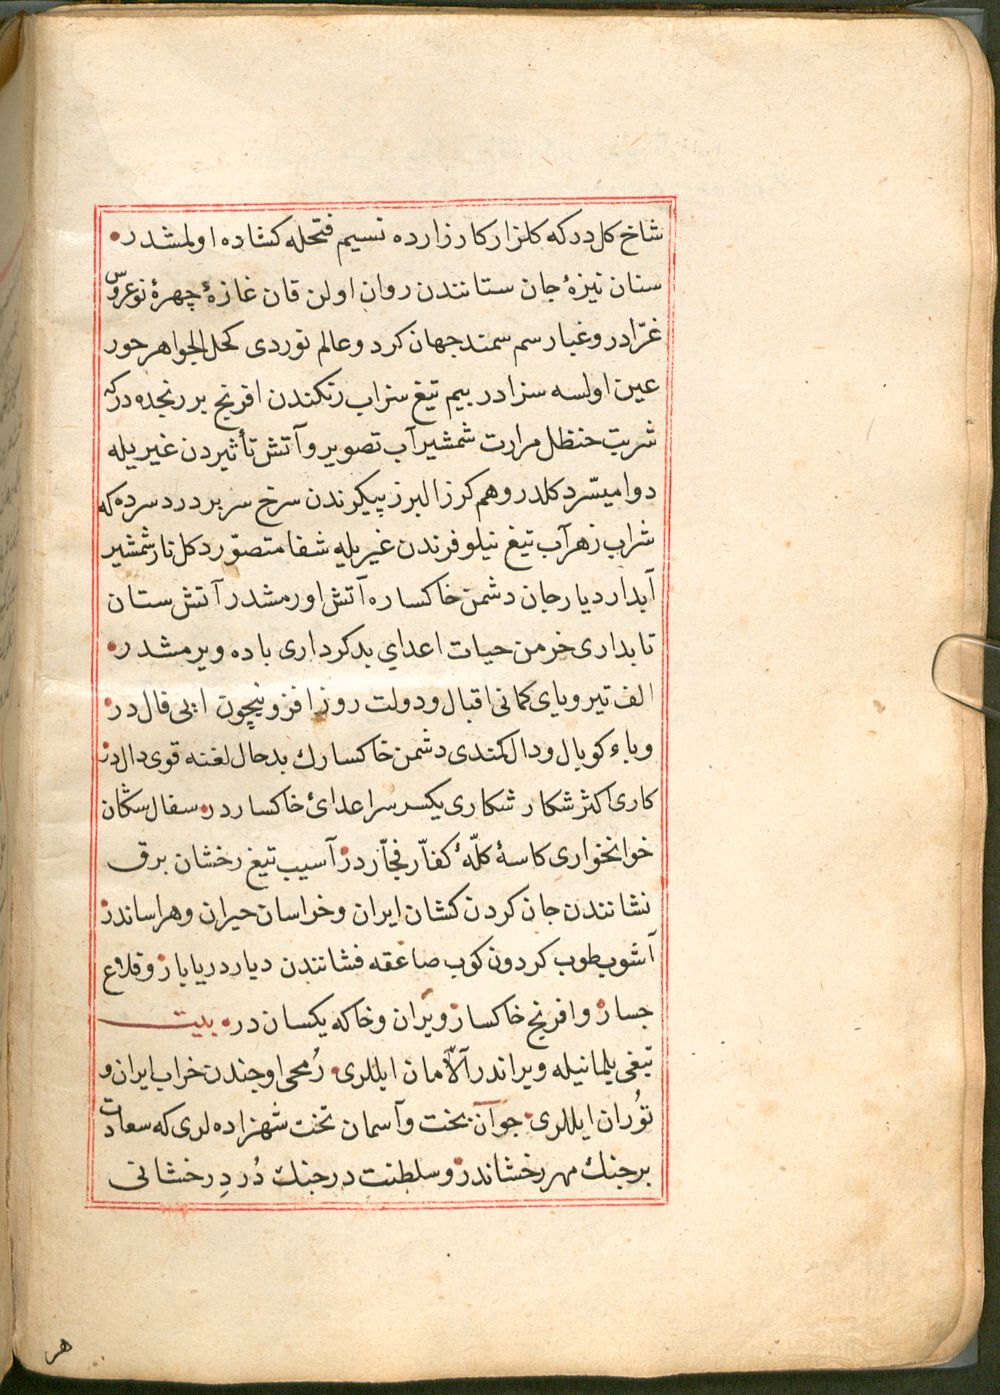 شاخ كل دركه كلزار كارزارده نسيم فتحله كشاده اولمشدر
سنان نيزۀ جان ستانندن روان اولن قان غازۀ چهرۀ نوعروس
غرّادر و غبار سم سمند جهان كرد و عالم نوردى كحل الجواهر حور
عين اولسه سزادر بيم تيغ سزاب رنكندن افرنج بر رنجده دركه
شربت حنظل مرارت شمشير آب تصوير و آتش تأثيردن غيريله
دوا ميسّر دكلدر و هم كرز البرز پيكرندن سرخ سر بر درد سرده كه
شراب زهرآب تيغ نيلوفرندن غيريله شفا متصوّر دكل نار شمشير
آبدار ديار جان دشمن خاكساره آتش اورمشدر آتش ستان
تابدارى خرمن حيات اعداى بدكردارى باده ويرمشدر
الف تير و ياى كمانى اقبال و دولت روز افزونيچون ايى فال در
و باء كوپال و دال كمندى دشمن خاكسارك بدحاللغنه قوى دالدر
كارى اكثر شكار شكارى يكسر سر اعداى خاكساردر سفال سكان
خوانخوارى كاسۀ كلّۀ كفّار فجّاردر آسيب تيغ رخشان برق
نشانندن جان كردن كشان ايران و خراسان حيران و هراساندر
آشوب طوب كردون كوب صاعقه فشانندن ديار دريابار و قلاع
جسار و افرنج خاكسار ويران و خاكه يكسان در بيت
تيغى يلمانيله ويراندر آلامان ايللرى رُمحى اوجندن خراب ايران و
تُوران ايللرى جوان بخت و آسمان تخت شهزاده لرى كه سعادت
برجنك مهر رخشاندر و سلطنت درجنك دُر دِرخشانى
هر